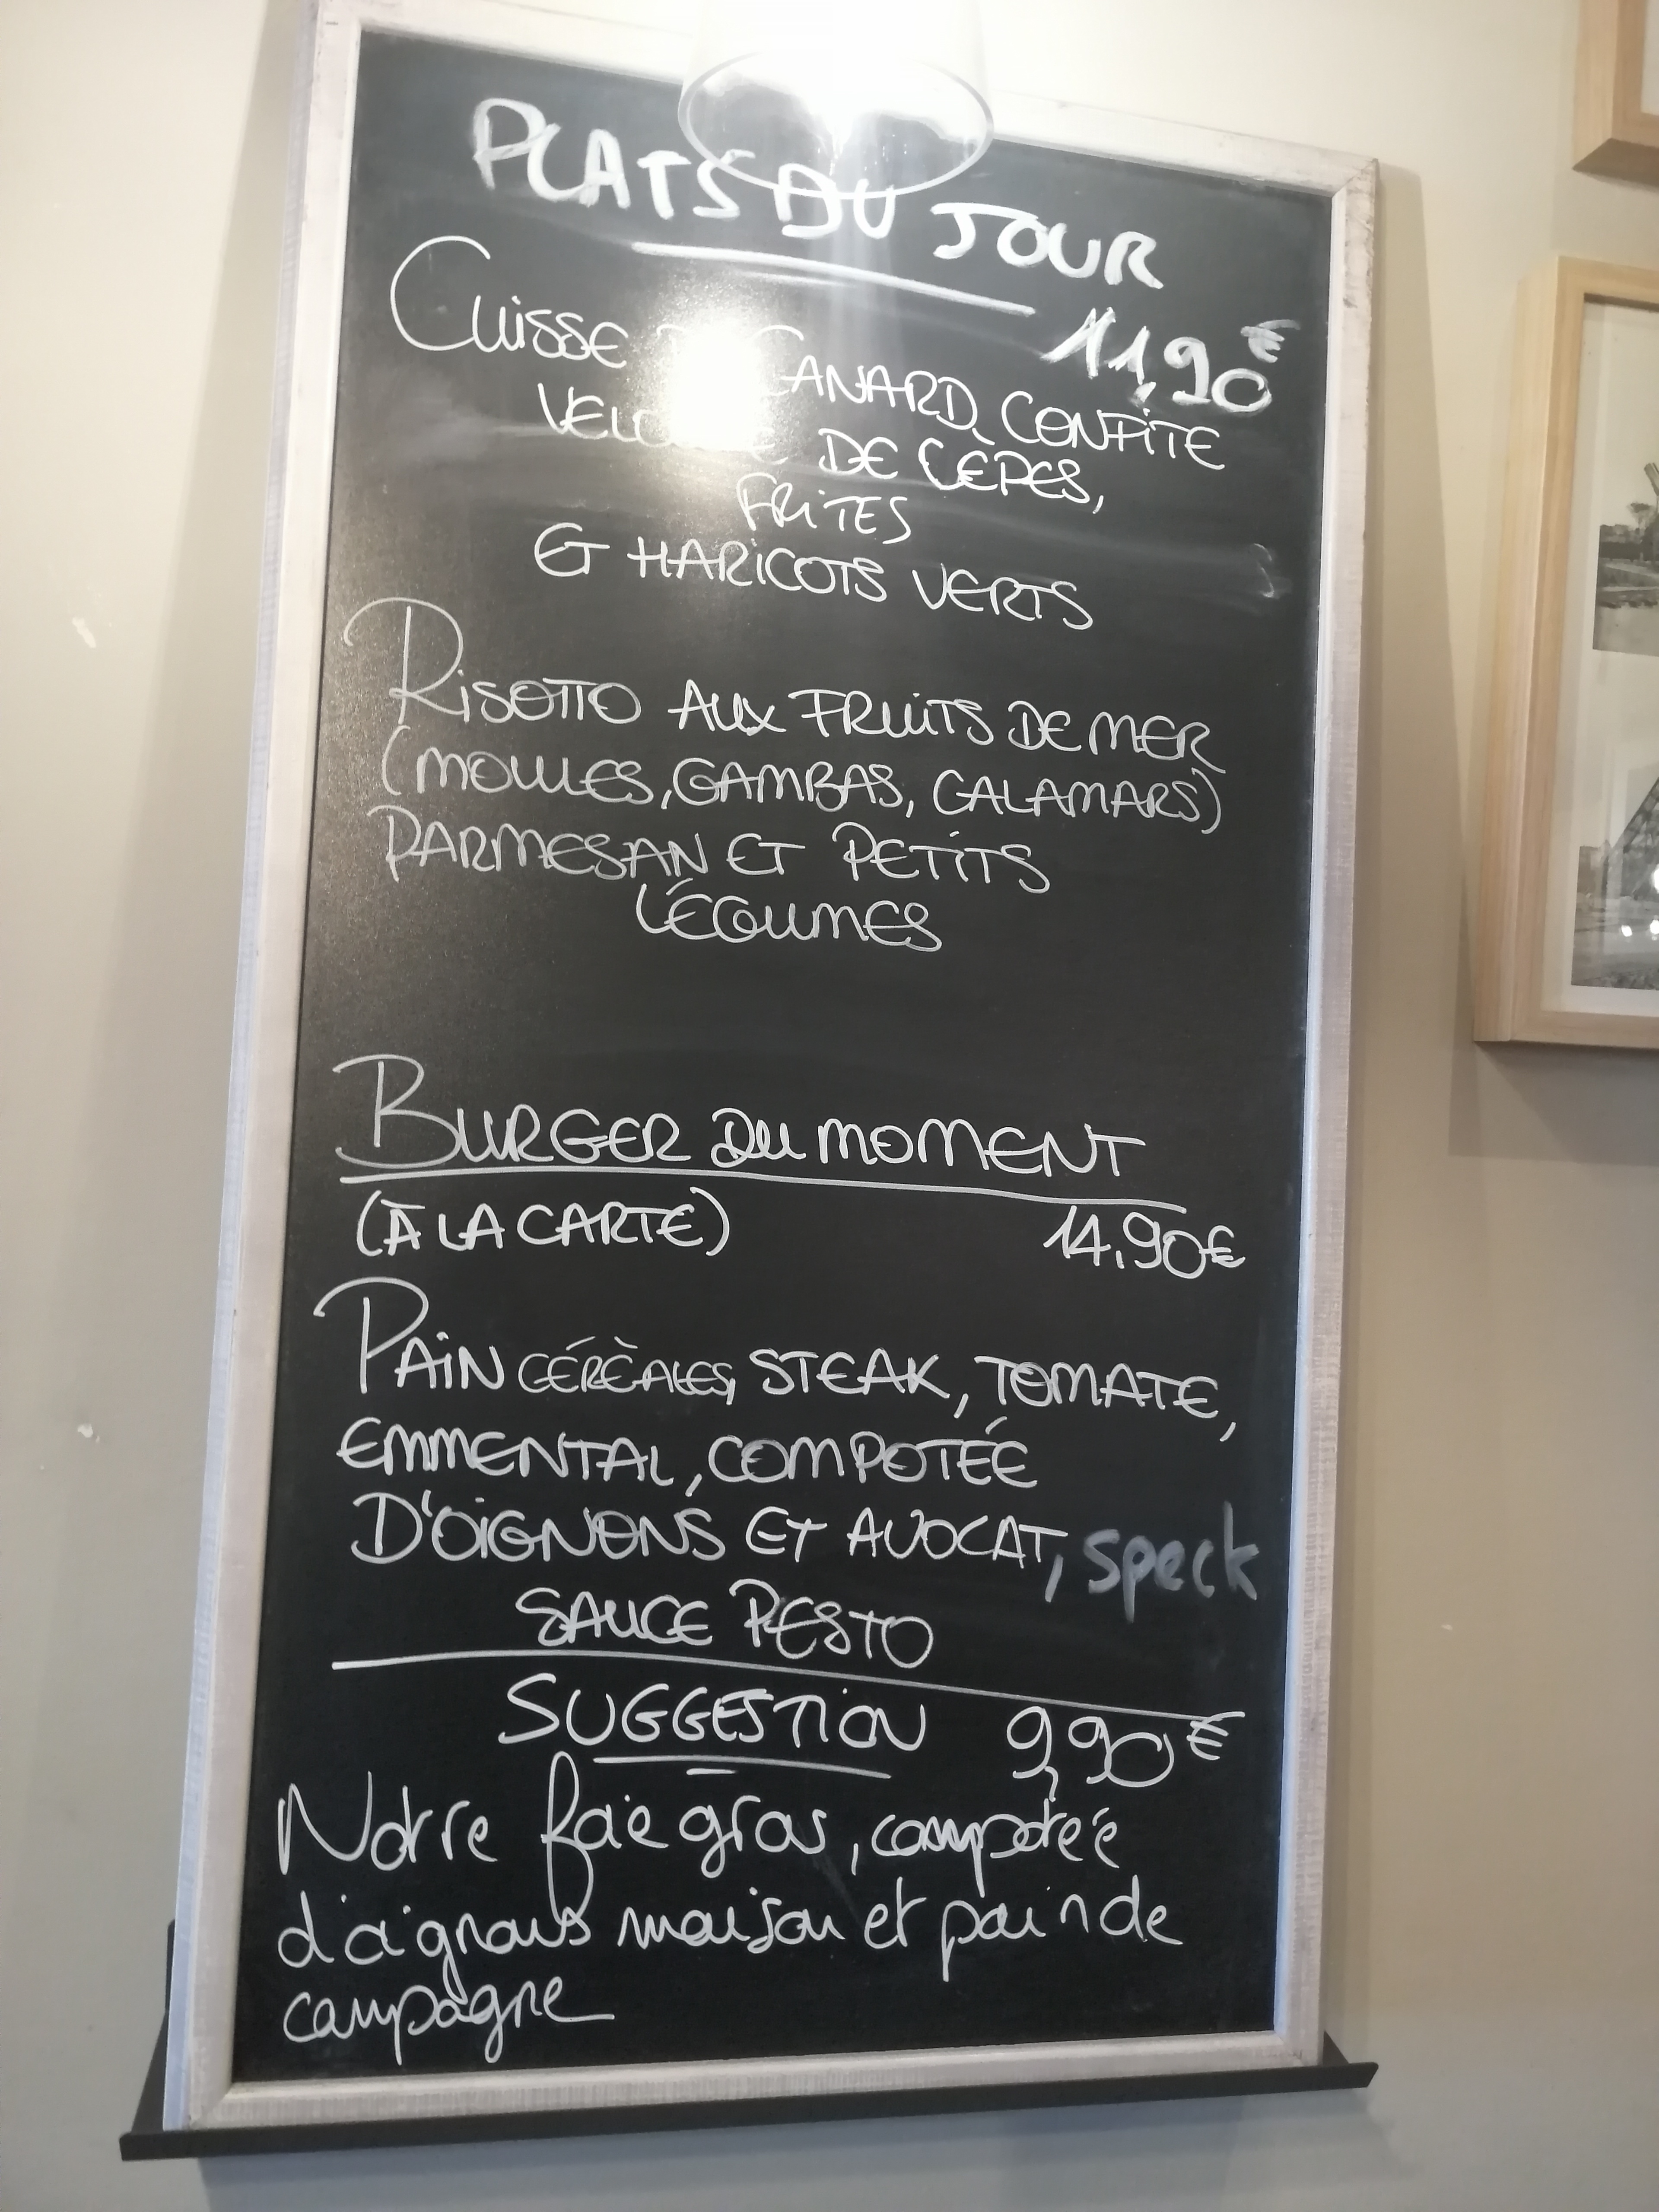 PLATS DU JOUR
11,90€
CUISSE CANARD CONFITE
DE CÈPES,
FRITES
ET HARICOTS VERTS
RISOTTO AUX FRUITS DE MER
(MOULES, GAMBAS, CALAMARS)
PARMESAN ET PETITS
LÉGUMES
BURGER DU MOMENT
(À LA CARTE) 14,90€
PAIN CÉRÈALES, STEAK, TOMATE,
EMMENTAL, COMPOTÉE
D'OIGNONS ET AVOCAT, speck
SAUCE PESTO
SUGGESTION 9,90€
Notre foie gras, compotée
d'oignons maison et pain de
campagne